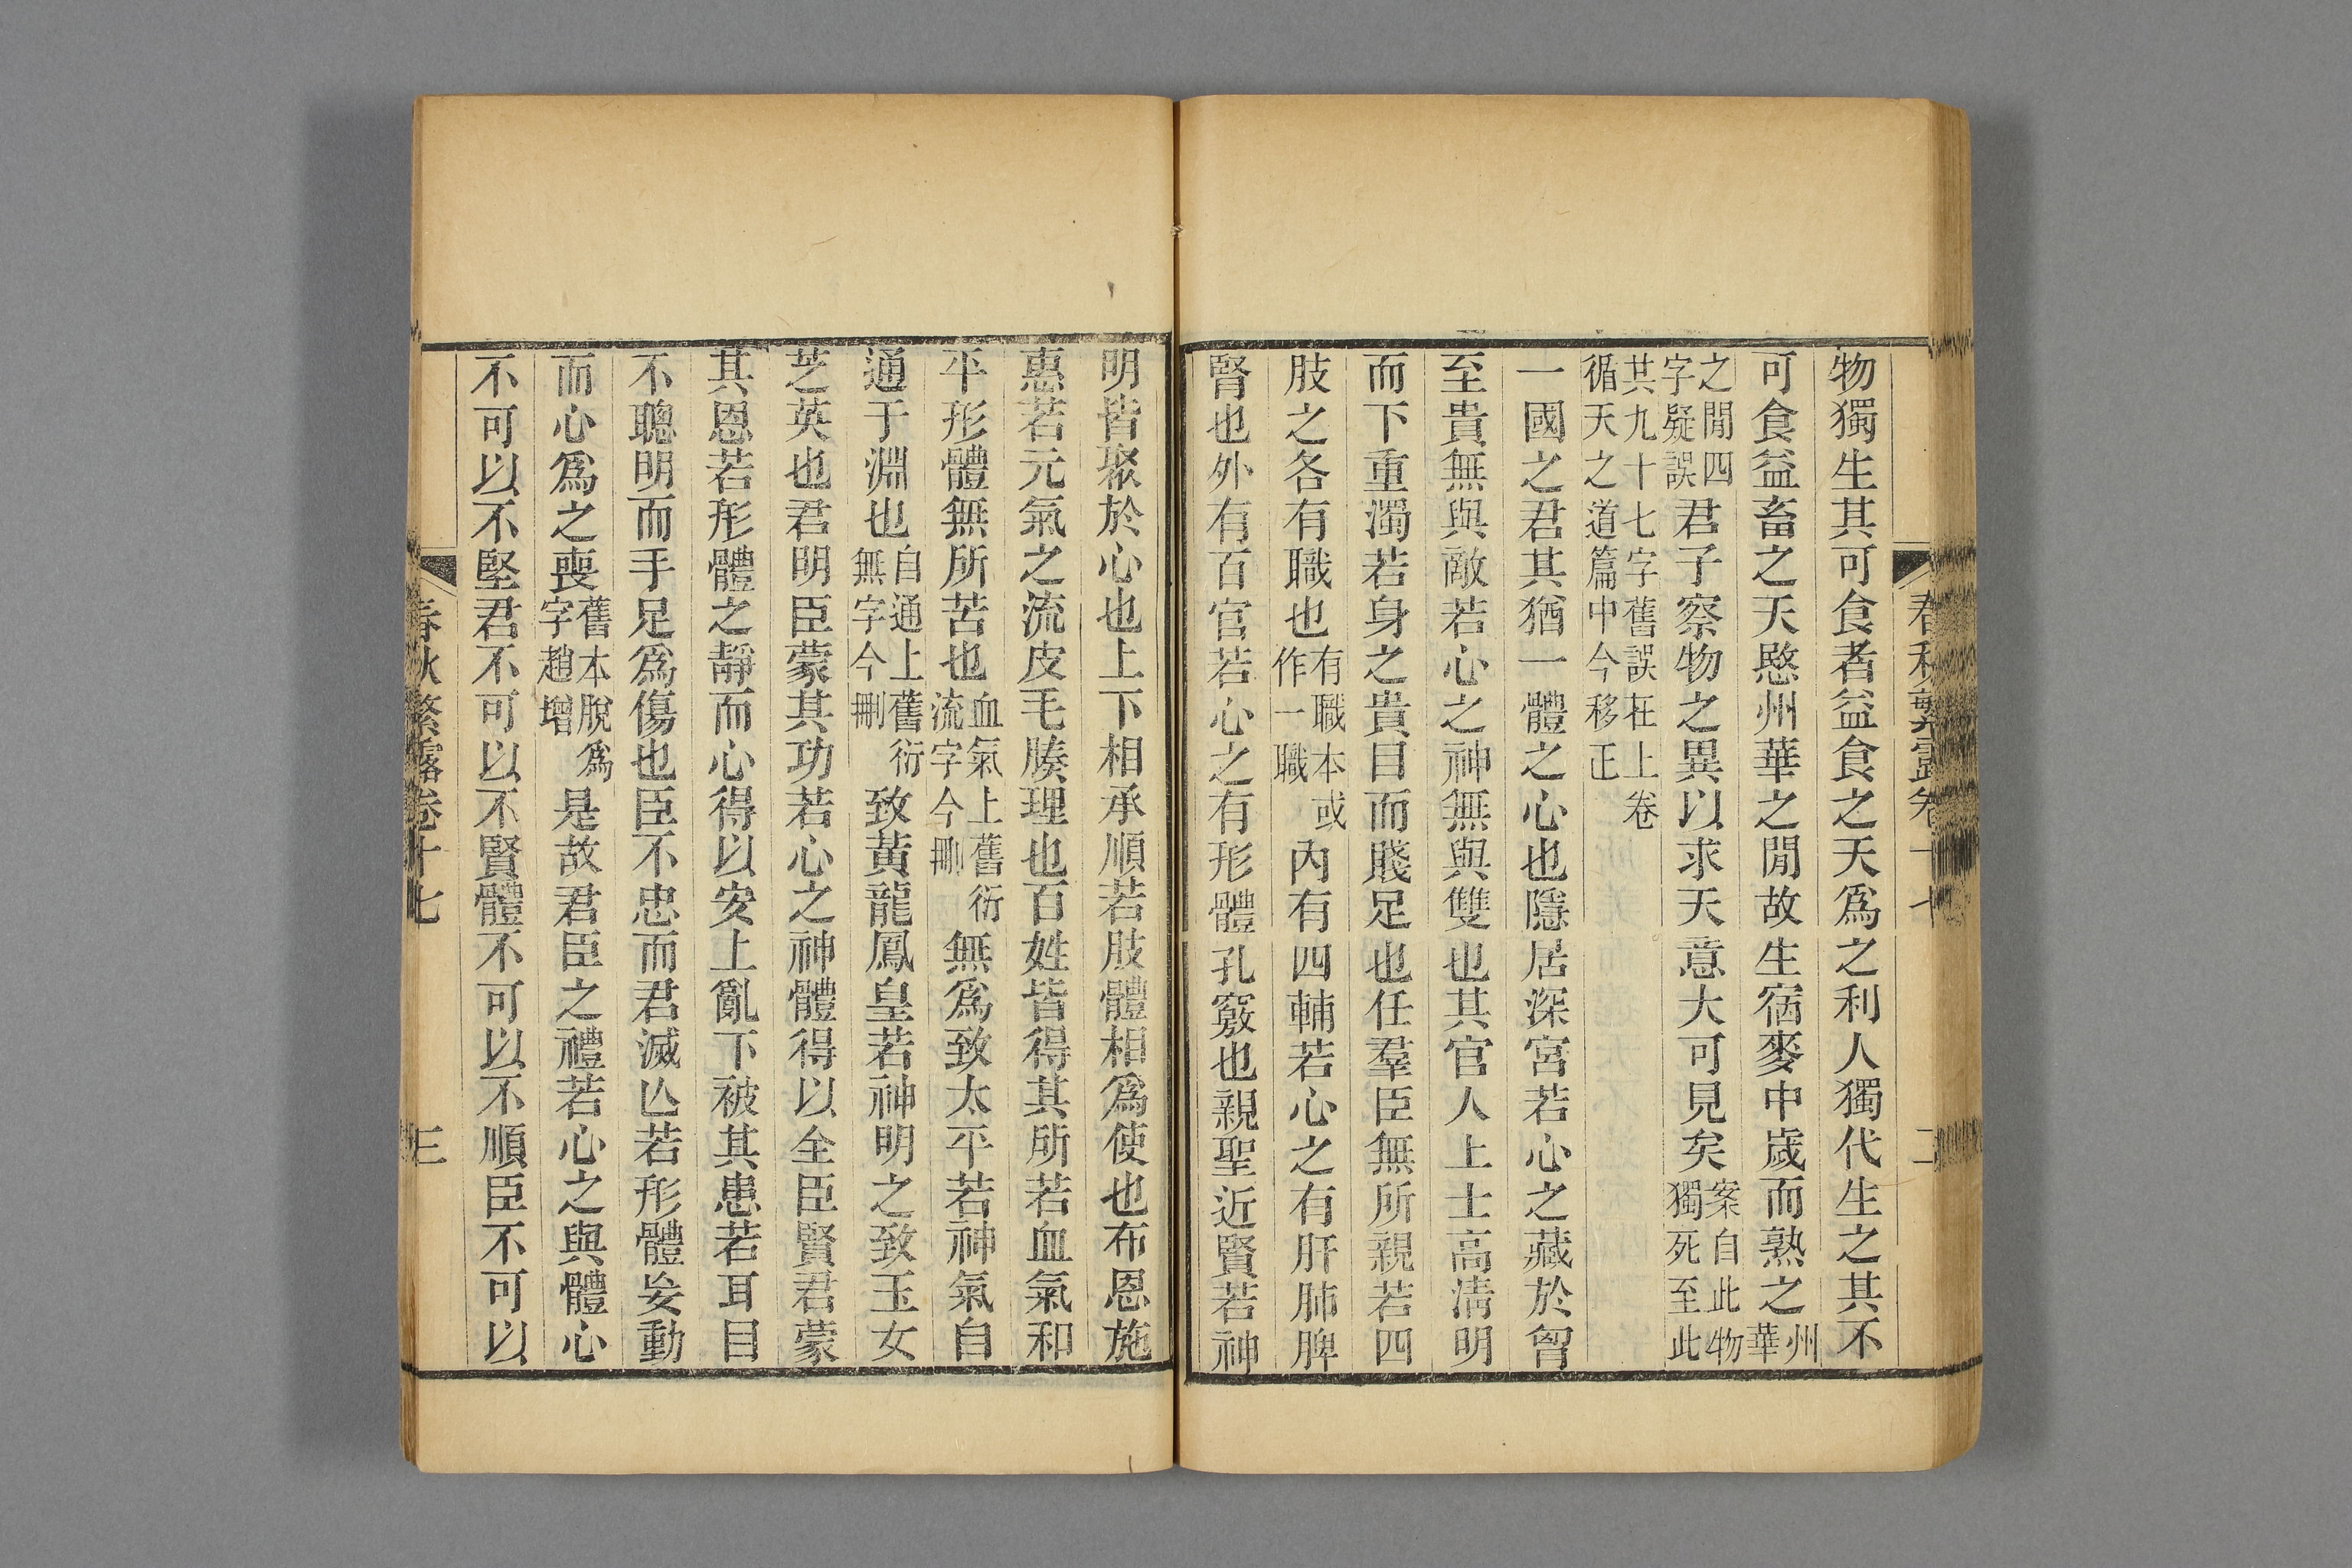 春秋繁露卷十七
二
物獨生其可食者益食之天爲之利人獨代生之其不
可食益畜之天愍州華之閒故生宿麥中歲而熟之州華
之閒四字疑誤君子察物之異以求天意大可見矣案自此物獨死至此
共九十七字舊誤在上卷循天之道篇中今移正
一國之君其猶一體之心也隱居深宮若心之藏於胷
至貴無與敵若心之神無與雙也其官人上士高淸明
而下重濁若身之貴目而賤足也任羣臣無所親若四
肢之各有職也有職本或作一職內有四輔若心之有肝肺脾
腎也外有百官若心之有形體孔竅也親聖近賢若神
明皆聚於心也上下相承順若肢體相爲使也布恩施
惠若元氣之流皮毛腠理也百姓皆得其所若血氣和
平形體無所苦也血氣上舊衍流字今刪無爲致太平若神氣自
通于淵也自通上舊衍無字今刪致黃龍鳳皇若神明之致玉女
芝英也君明臣蒙其功若心之神體得以全臣賢君蒙
其恩若形體之靜而心得以安上亂下被其患若耳目
不聰明而手足爲傷也臣不忠而君滅亾若形體妄動
而心爲之喪舊本脫爲字趙增是故君臣之禮若心之與體心
不可以不堅君不可以不賢體不可以不順臣不可以
春秋繁露卷十七
三